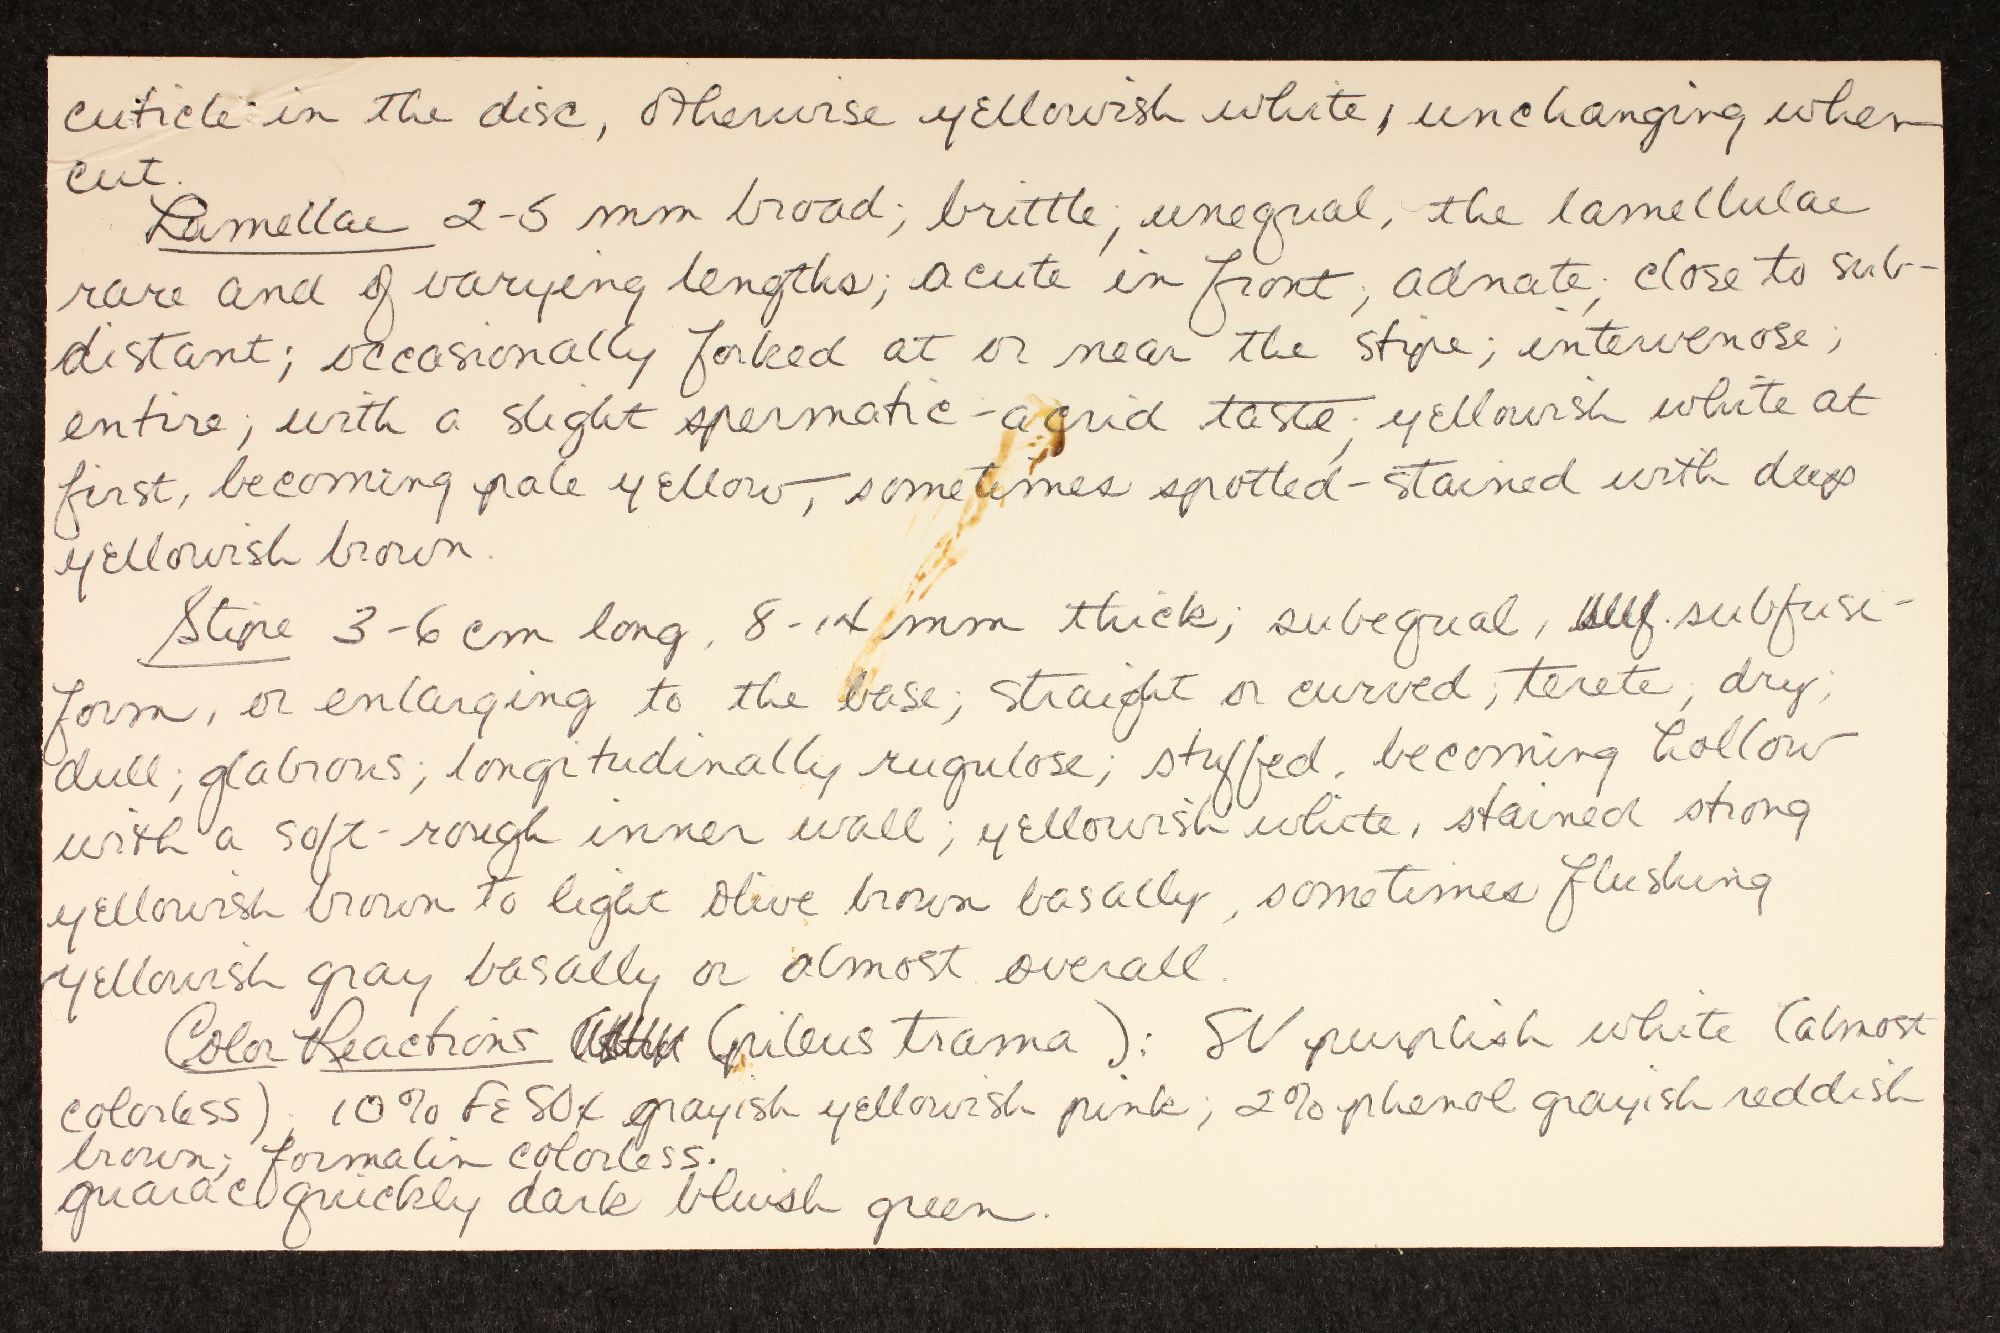 cuticle in the disc, otherwise yellowish white, unchanging when
cut.
Lamellae 2-5 mm broad; brittle; unequal, the lamellulae
rare and of varying lengths; acute in front; adnate; close to sub-
distant; occasionally forked at or near the stipe; intervenose;
entire; with a slight spermatic-acrid taste; yellowish white at
first, becoming pale yellow, sometimes spotted-stained with deep
yellowish brown.
Stipe 3-6 cm long, 8-14 mm thick; subequal, subfusi-
form, or enlarging to the base; straight or curved; terete; dry;
dull; glabrous; longitudinally rugulose; stuffed, becoming hollow
with a soft-rough inner wall; yellowish white, stained strong
yellowish brown to light olive brown basally, sometimes flushing
yellowish gray basally or almost overall.
Color Reactions (pileus trama): SV purplish white (almost
colorless), 10% FeSO4 grayish yellowish pink; 2% phenol grayish reddish
brown; formalin colorless.
guaiac quickly dark bluish green.